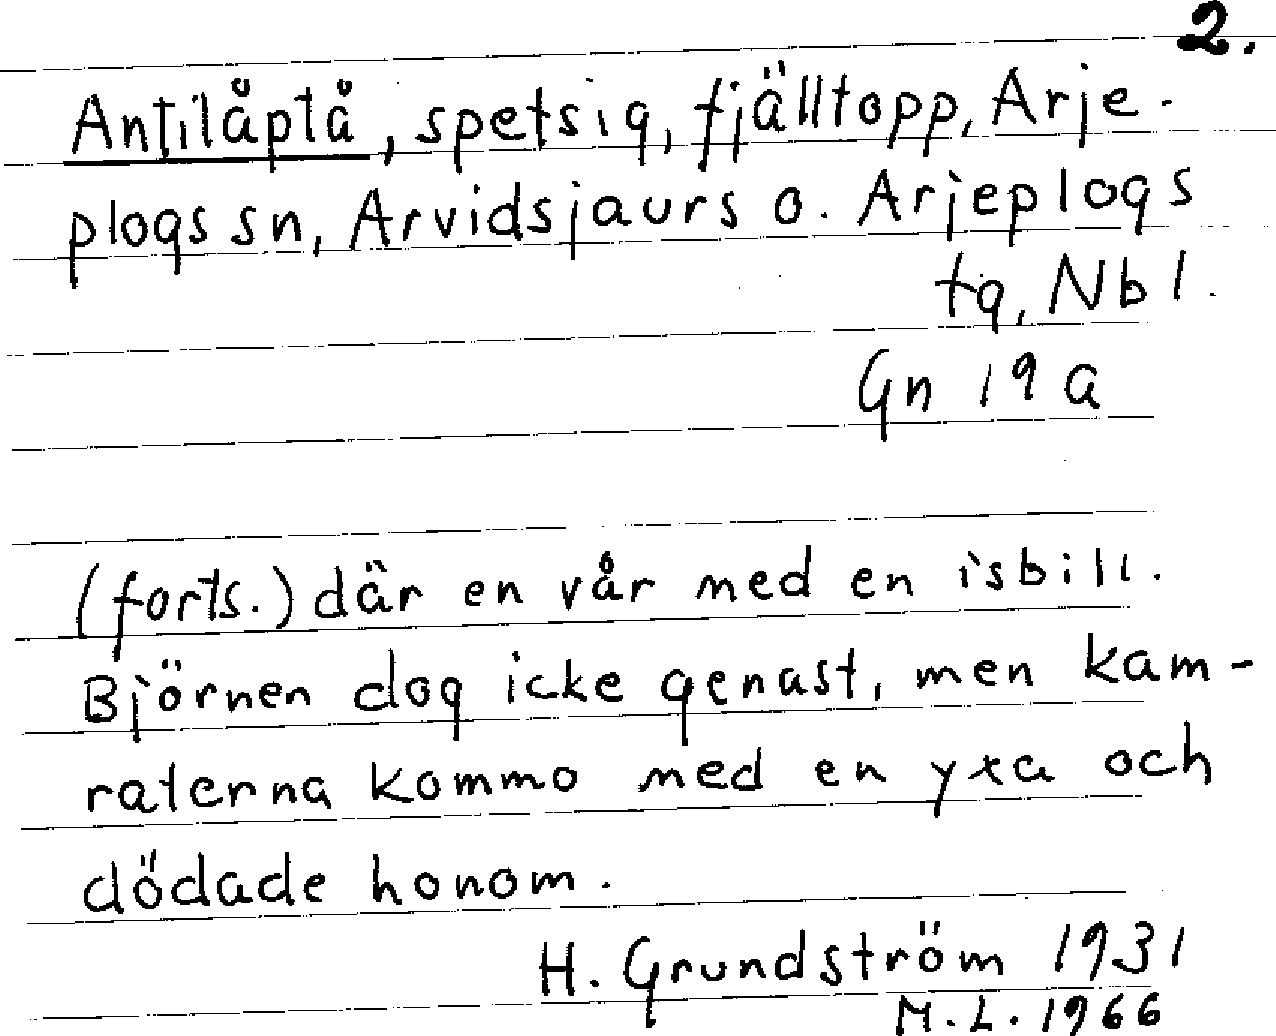 2.
Antilåptå, spetsig, fjälltopp, Arje-
plogs sn, Arvidsjaurs o. Arjeplogs
tg, Nbl.
Gn 19 a
(forts.) där en vår med en isbill.
Björnen dog icke genast, men kam-
raterna kommo med en yxa och
dödade honom.
H. Grundström 1931
M.L. 1966